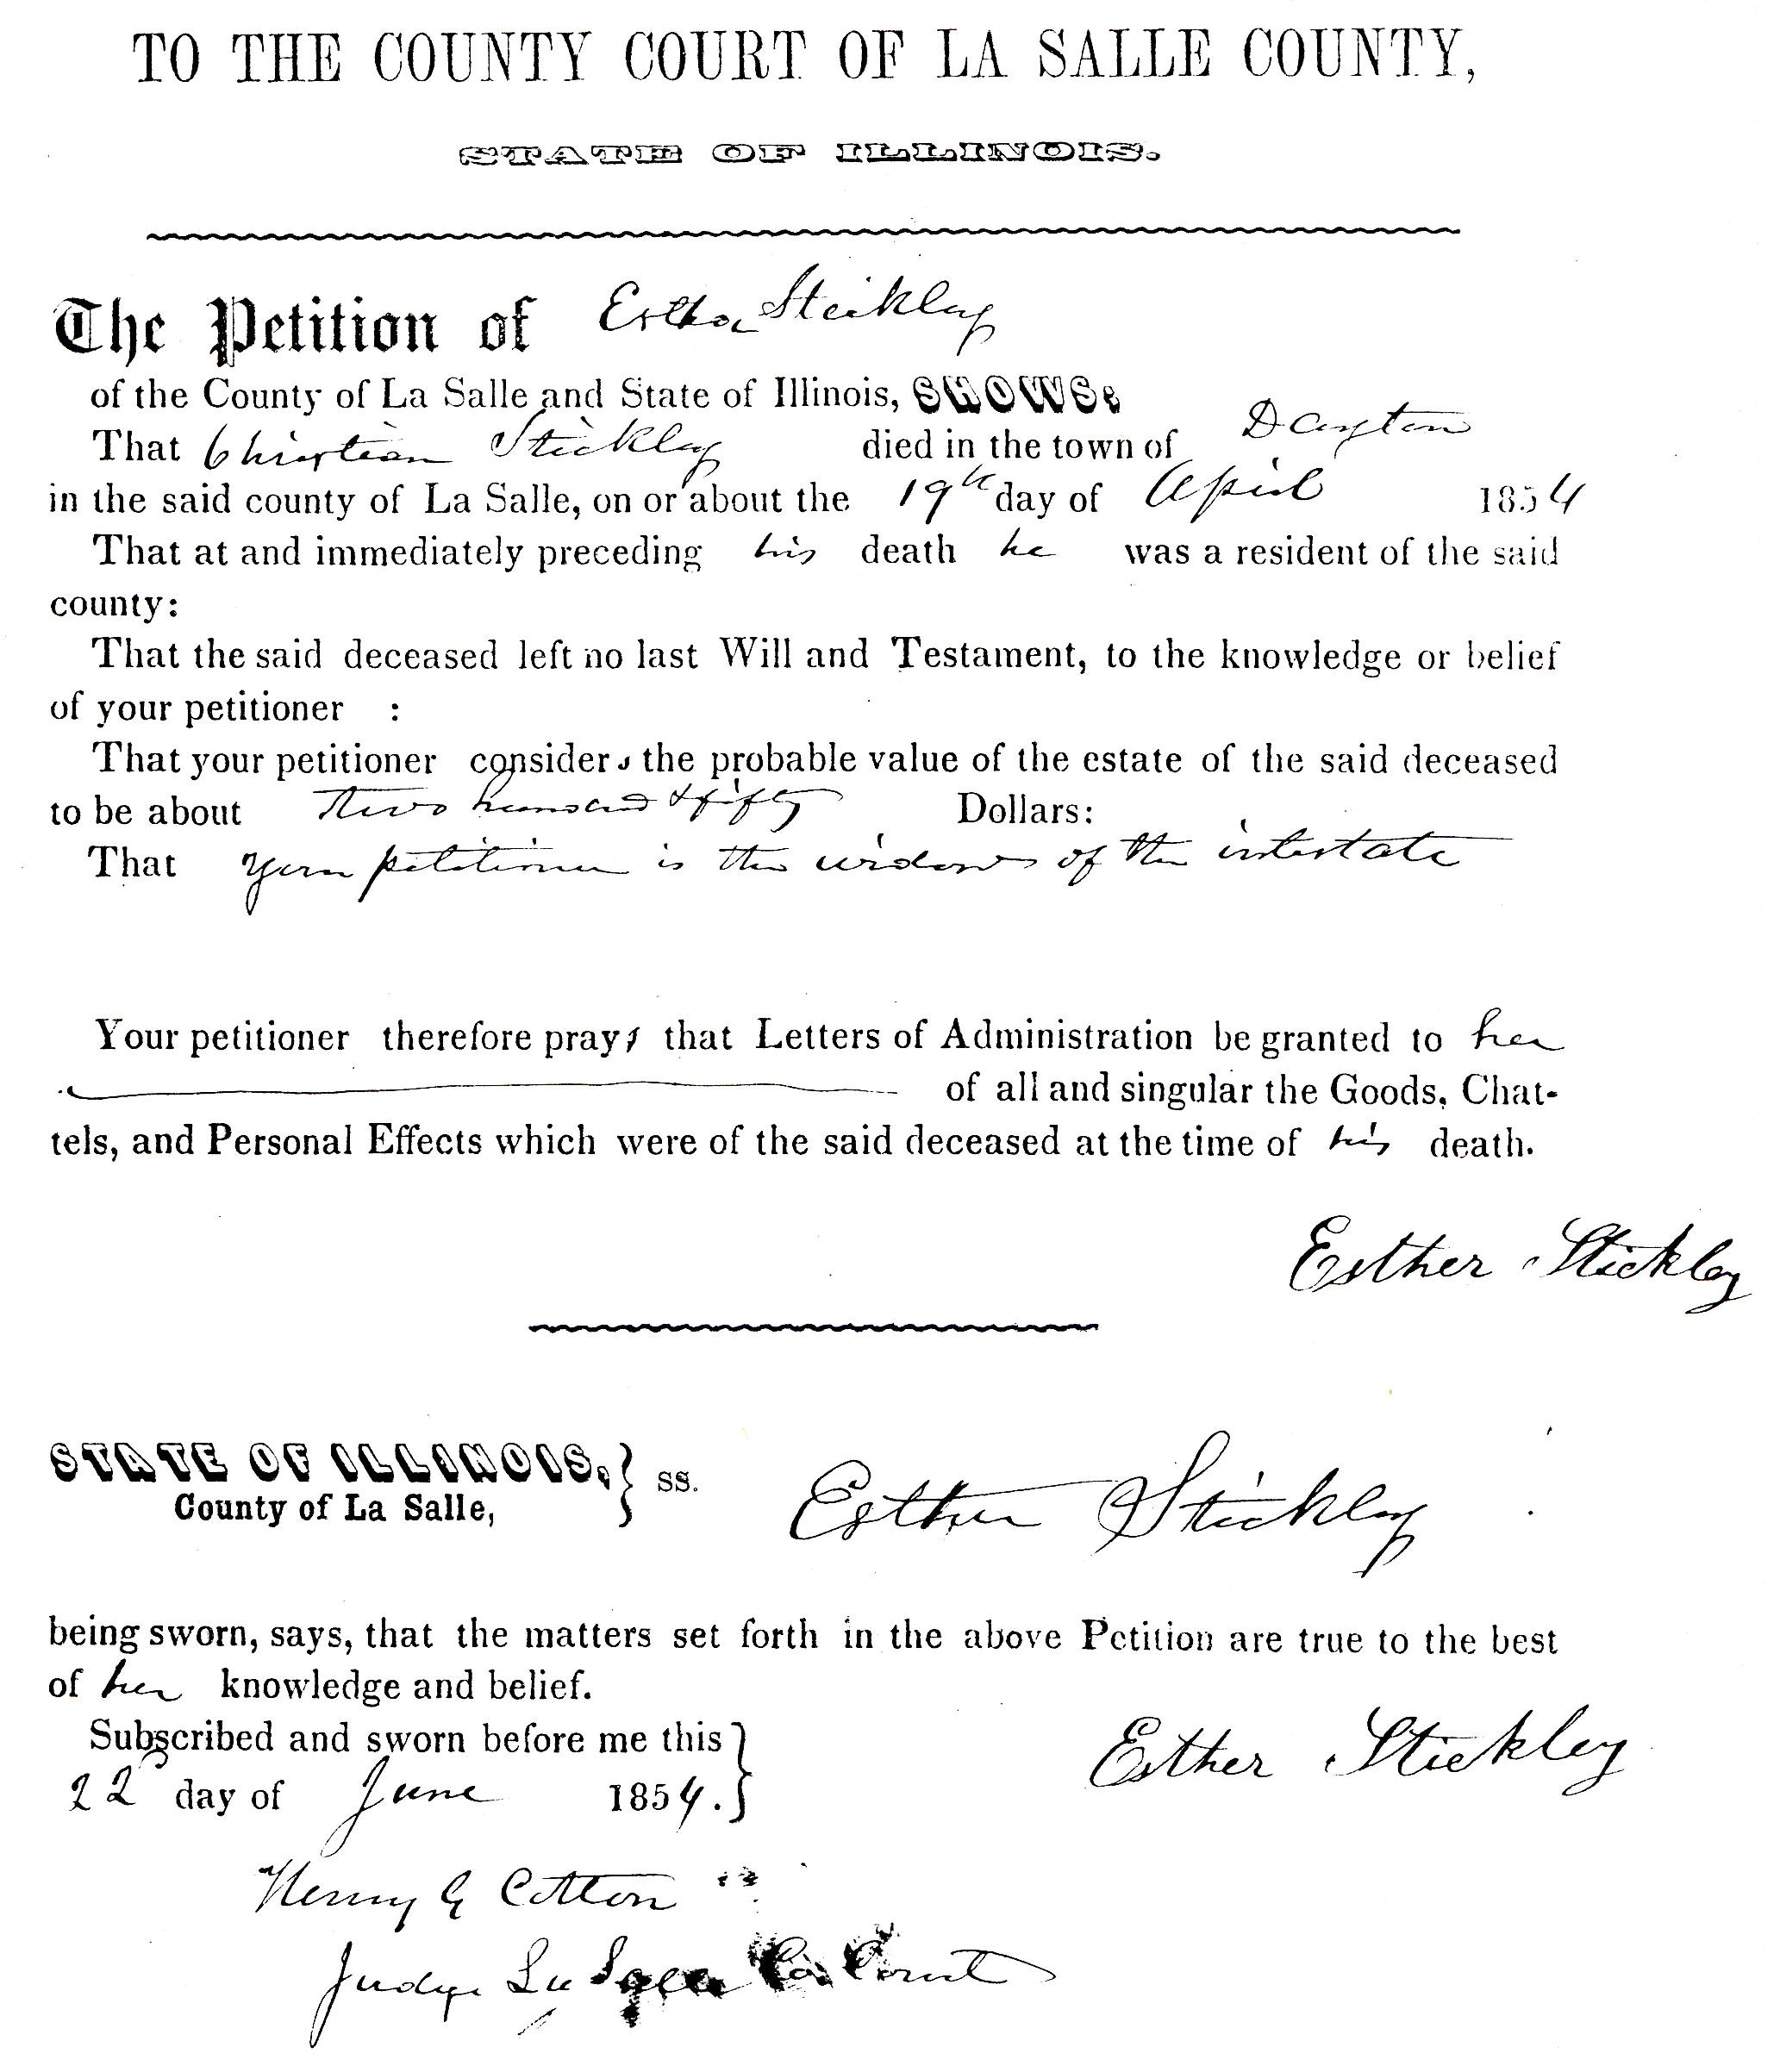 TO THE COUNTY COURT OF LA SALLE COUNTY,
STATE OF ILLINOIS.
The Petition of Esther Stickley
of the County of La Salle and State of Illinois, SHOWS:
That Christian Stickley died in the town of Dayton
in the said county of La Salle, on or about the 19th day of April 1854
That at and immediately preceding his death he was a resident of the said
county:
That the said deceased left no last Will and Testament, to the knowledge or belief
of your petitioner :
That your petitioner considers the probable value of the estate of the said deceased
to be about two hundred & fifty Dollars:
That your petitioner is the widow of the intestate
Your petitioner therefore prays that Letters of Administration be granted to her
of all and singular the Goods, Chat-
tels, and Personal Effects which were of the said deceased at the time of his death.
Esther Stickley
STATE OF ILLINOIS, } ss.
County of La Salle,
Esther Stickley
being sworn, says, that the matters set forth in the above Petition are true to the best
of her knowledge and belief.
Subscribed and sworn before me this }
22d day of June 1854.
Esther Stickley
Henry G Cotton
Judge La Salle Co. Court